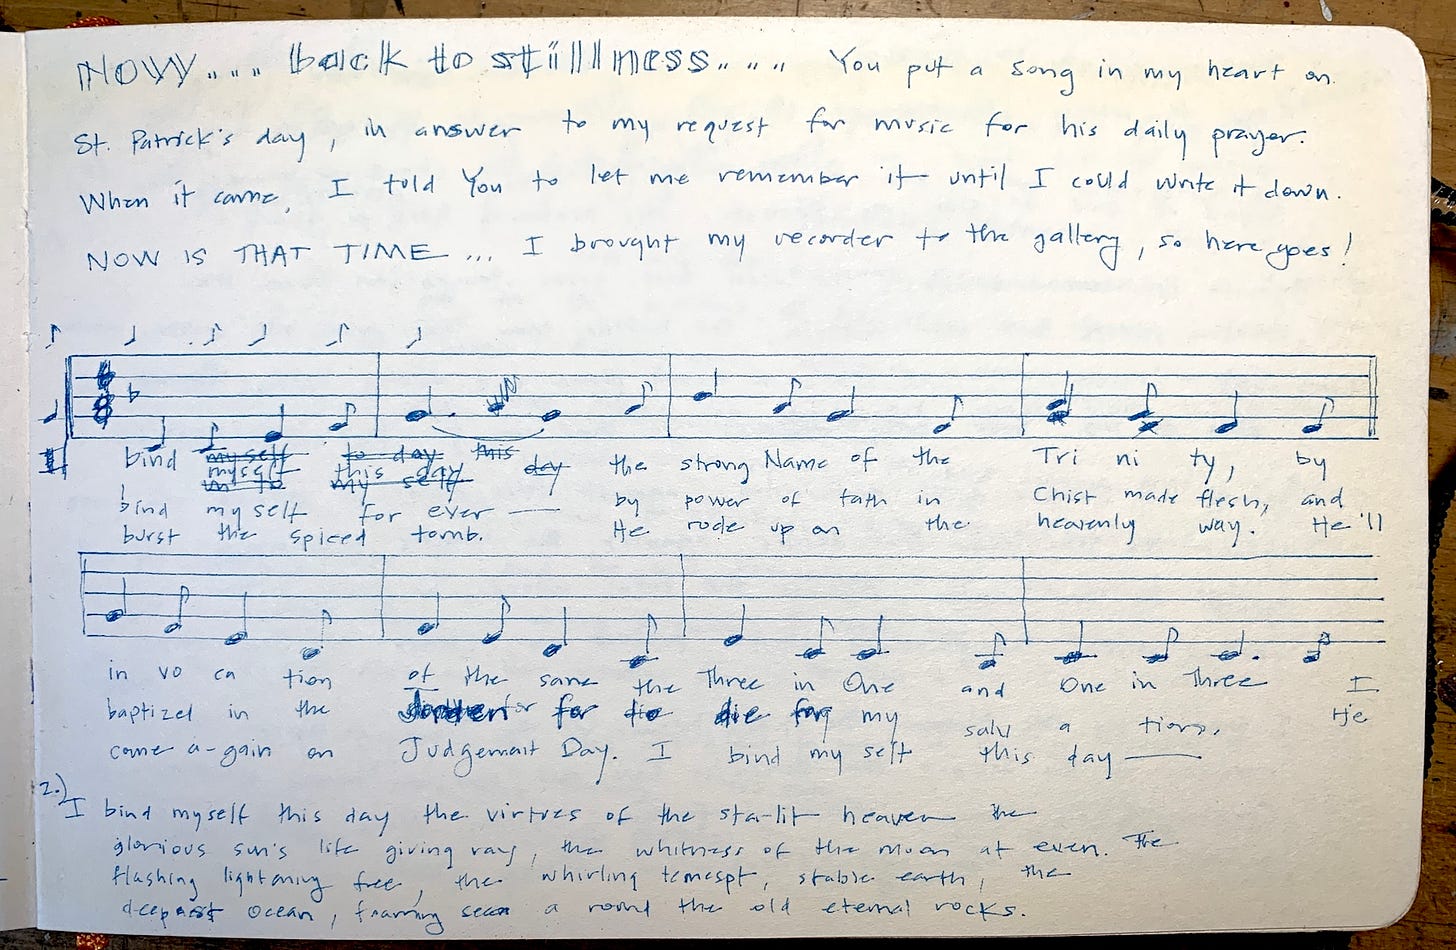 NOW.... back to stillness..... You put a song in my heart on
St. Patrick's day, in answer to my request for music for his daily prayer.
When it came, I told You to let me remember it until I could write it down.
NOW IS THAT TIME... I brought my recorder to the gallery, so here goes!
bind myself to day this day the strong Name of the Tri ni ty, by
myself this day
my self
bind my self for ever — by power of faith in Chist made flesh, and
burst the spiced tomb. He rode up on the heavenly way. He'll
in vo ca tion of the same the Three in One and One in Three I
baptized in the for for die for my salv a tion, He
came a-gain on Judgement Day. I bind my self this day —
2.) I bind myself this day the virtues of the sta-lit heaven the
glorious sun's life giving ray, the whitness of the moon at even. The
flashing lightening free, the whirling temespt, stable earth, the
deepest ocean, foaming seas a round the old eternal rocks.